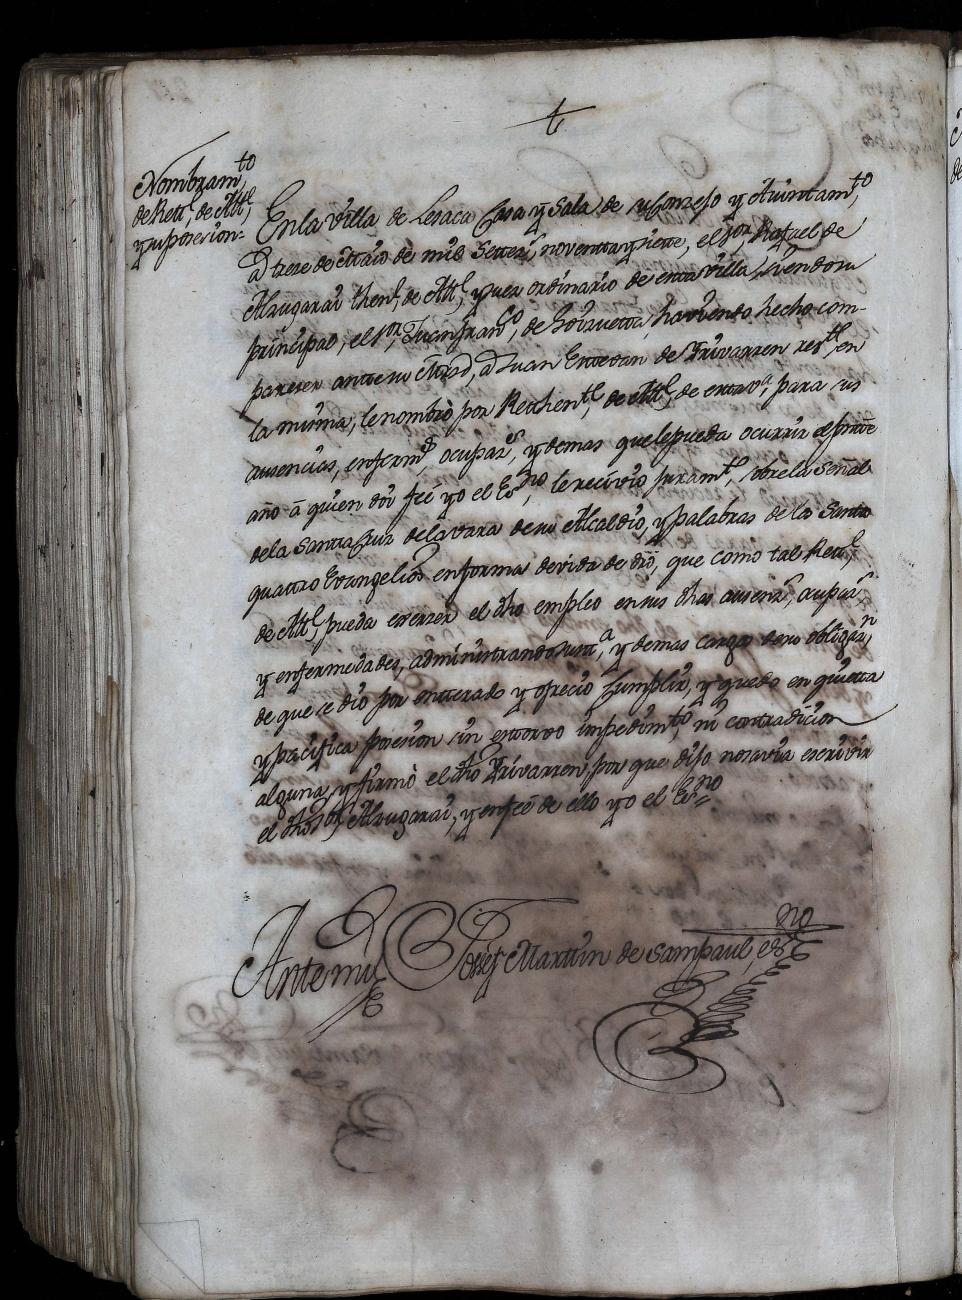 Nombram.to
de Rett.e de Alt.e
y su posesion=
En la villa de Lesaca Casa y Sala de su Conzejo y Aiuntam.to
a treze de Maio de mil Settez.s noventa y siette, el s.or Rafael de
Alzugarai then.te de Alt.e y juez ordinario de esta villa, siendo su
principal, el s.or Juan fran.co de hoirvetta, haviendo hecho com-
parezer ante su Mrzd, a Juan Estevan de Irivarren res.te en
la misma, le nombrò por Rethen.te de Alt.e de esta v.a para sus
ausencias, enferm.s ocupaz.s y demas que le pueda ocurrir el pnte
año à quien doi feè yo el Es.no le recivio juram.to sobre la señal
de la Santa Cruz de la vara de su Alcaldio, y palabras de los Santos
quattro Evangelios en forma devida de dro, que como tal Rett.e
de Alt.e pueda exerzer el dho empleo en sus dhas ausenz.s ocupaz.s
y enfermedades, administrando just.a y demas cargos de su obligaz.n
de que se dio por entterado y ofreciò Cumplir, y quedo en quietta
y pacifica posesion sin estorvo impedim.to ni contradicion
alguna, y firmò el dho Irivarren, por que dijo no savia escrivir
el dho s.or Alzugarai, y en feè de ello yo el Es.no=
Ante mi Josef Martin de Sampaul, es.no